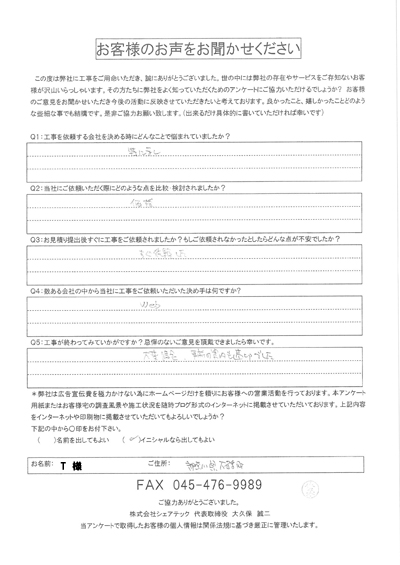 お客様のお声をお聞かせください
この度は弊社に工事をご用命いただき、誠にありがとうございました。世の中には弊社の存在やサービスをご存知ないお客
様が沢山いらっしゃいます。その方たちに弊社をよく知っていただくためのアンケートにご協力いただけるでしょうか? お客様
のご意見をお聞かせいただき今後の活動に反映させていただきたいと考えております。良かったこと、嬉しかったことどのよう
な些細な事でも結構です。是非ご協力お願い致します。(出来るだけ具体的に書いていただければ幸いです)
Q1:工事を依頼する会社を決める時にどんなことで悩まれていましたか?
特になし
Q2:当社にご依頼いただく際にどのような点を比較・検討されましたか?
価格
Q3:お見積り提出後すぐに工事をご依頼されましたか?もしご依頼されなかったとしたらどんな点が不安でしたか?
Q4:数ある会社の中から当社に工事をご依頼いただいた決め手は何ですか?
Q5:工事が終わってみていかがですか?忌憚のないご意見を頂戴できましたら幸いです。
*弊社は広告宣伝費を極力かけない為にホームページだけを頼りにお客様への営業活動を行っております。本アンケート
用紙またはお客様宅の調査風景や施工状況を随時ブログ形式のインターネットに掲載させていただいております。上記内容
をインターネットや印刷物に掲載させていただいてもよろしいでしょうか?
下記の中から○印をお付下さい。
( )名前を出してもよい ( ✓)イニシャルなら出してもよい
お名前: T 様 ご住所:
FAX 045-476-9989
ご協力ありがとうございました。
株式会社シェアテック 代表取締役 大久保 誠二
当アンケートで取得したお客様の個人情報は関係法規に基づき厳正に管理いたします。